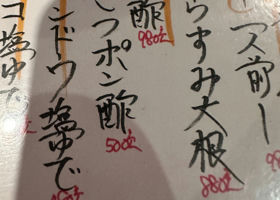 ス前し
らすみ大根
880
酢
980
つポン酢
500
ンドウ塩ゆで
コ塩ゆで